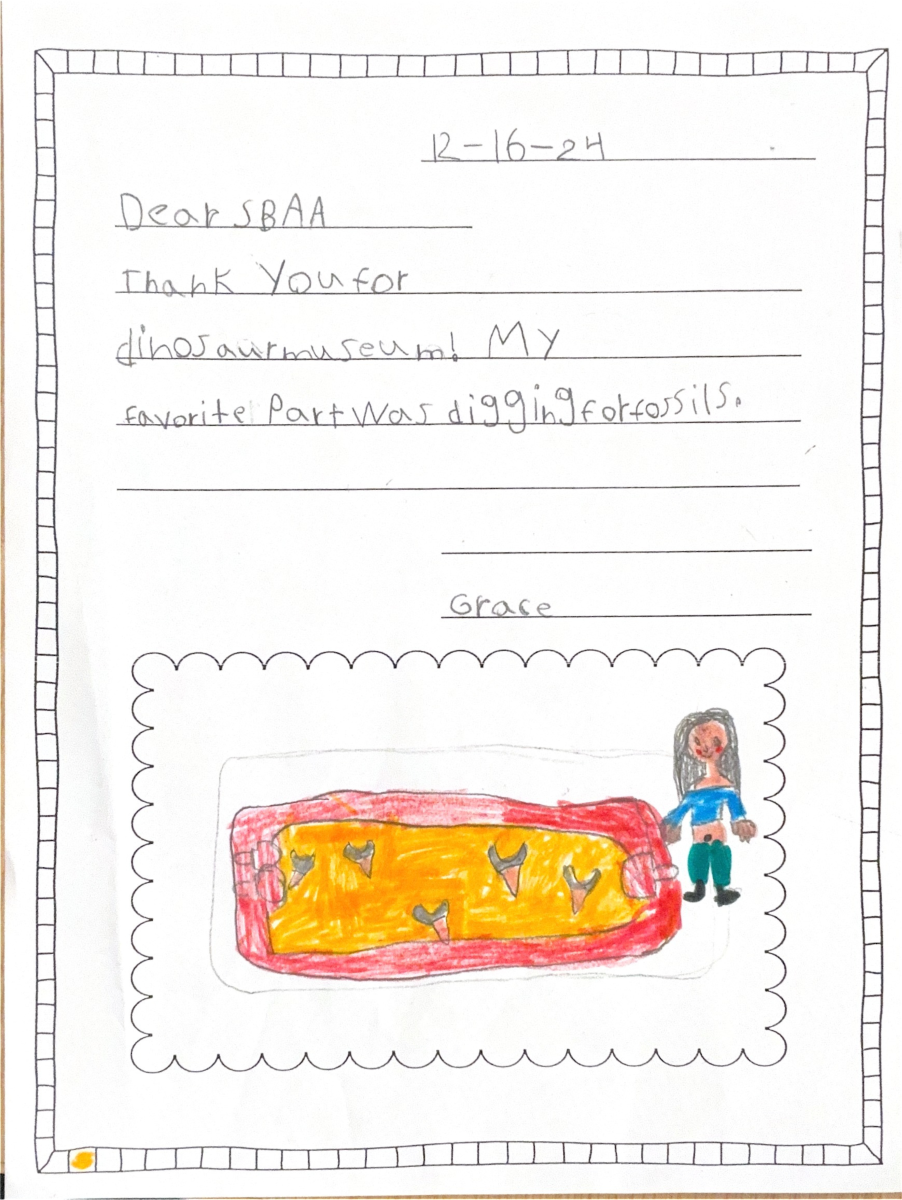 12-16-24
Dear SBAA
Thank You for
dinosaur museum! My
favorite Part was digging for fossils.
Grace